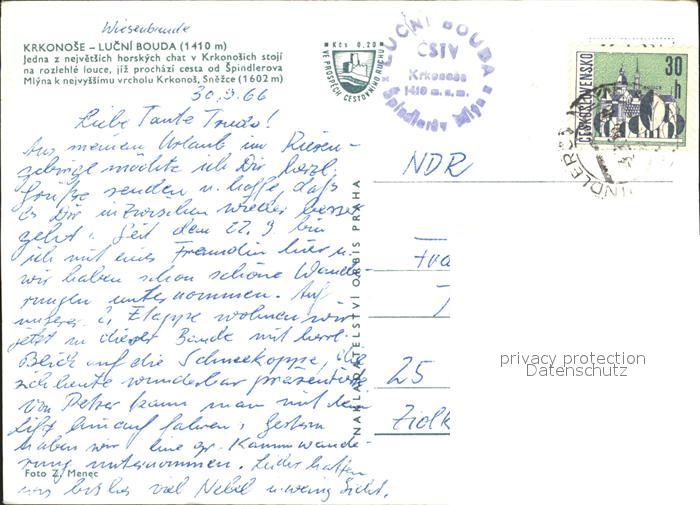 Wiesenbaude
KRKONOŠE – LUČNÍ BOUDA (1410 m)
Jedna z největších horských chat v Krkonoších stojí
na rozlehlé louce, jíž prochází cesta od Špindlerova
Mlýna k nejvyššímu vrcholu Krkonoš, Sněžce (1602 m)
Kčs 0,20
VE PROSPĚCH CESTOVNÍHO RUCHU
LUČNÍ BOUDA
ČSTV
Krkonoše
1410 m.n.m.
Špindlerův Mlýn
30 h
ČESKOSLOVENSKO
30.9.66
Liebe Tante Trudo!
Aus meinem Urlaub im Riesen-
gebirge möchte ich Dir herzl.
Grüße senden u. hoffe, daß
es Dir inzwischen wieder besser
geht. Seit dem 22.9 bin
ich mit einer Freundin hier u.
wir haben schon schöne Wande-
rungen unternommen. Auf
unserer 2. Etappe wohnen wir
jetzt in dieser Baude mit herrl.
Blick auf die Schneekoppe, die
sich heute wunderbar präsentierte
Von Petzer kann man mit dem
Lift hinauf fahren. Gestern
haben wir eine gr. Kammwande-
rung unternommen. Leider hatten
wir bisher viel Nebel u. wenig Sicht.
Foto Z. Menec
NAKLADATELSTVÍ ORBIS PRAHA
NDR
25
privacy protection
Datenschutz